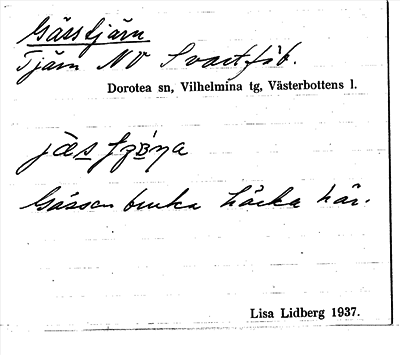 Gässtjärn
Tjärn NV Svartsjöb.
Dorotea sn, Vilhelmina tg, Västerbottens l.
Gässen bruka häcka här.
Lisa Lidberg 1937.